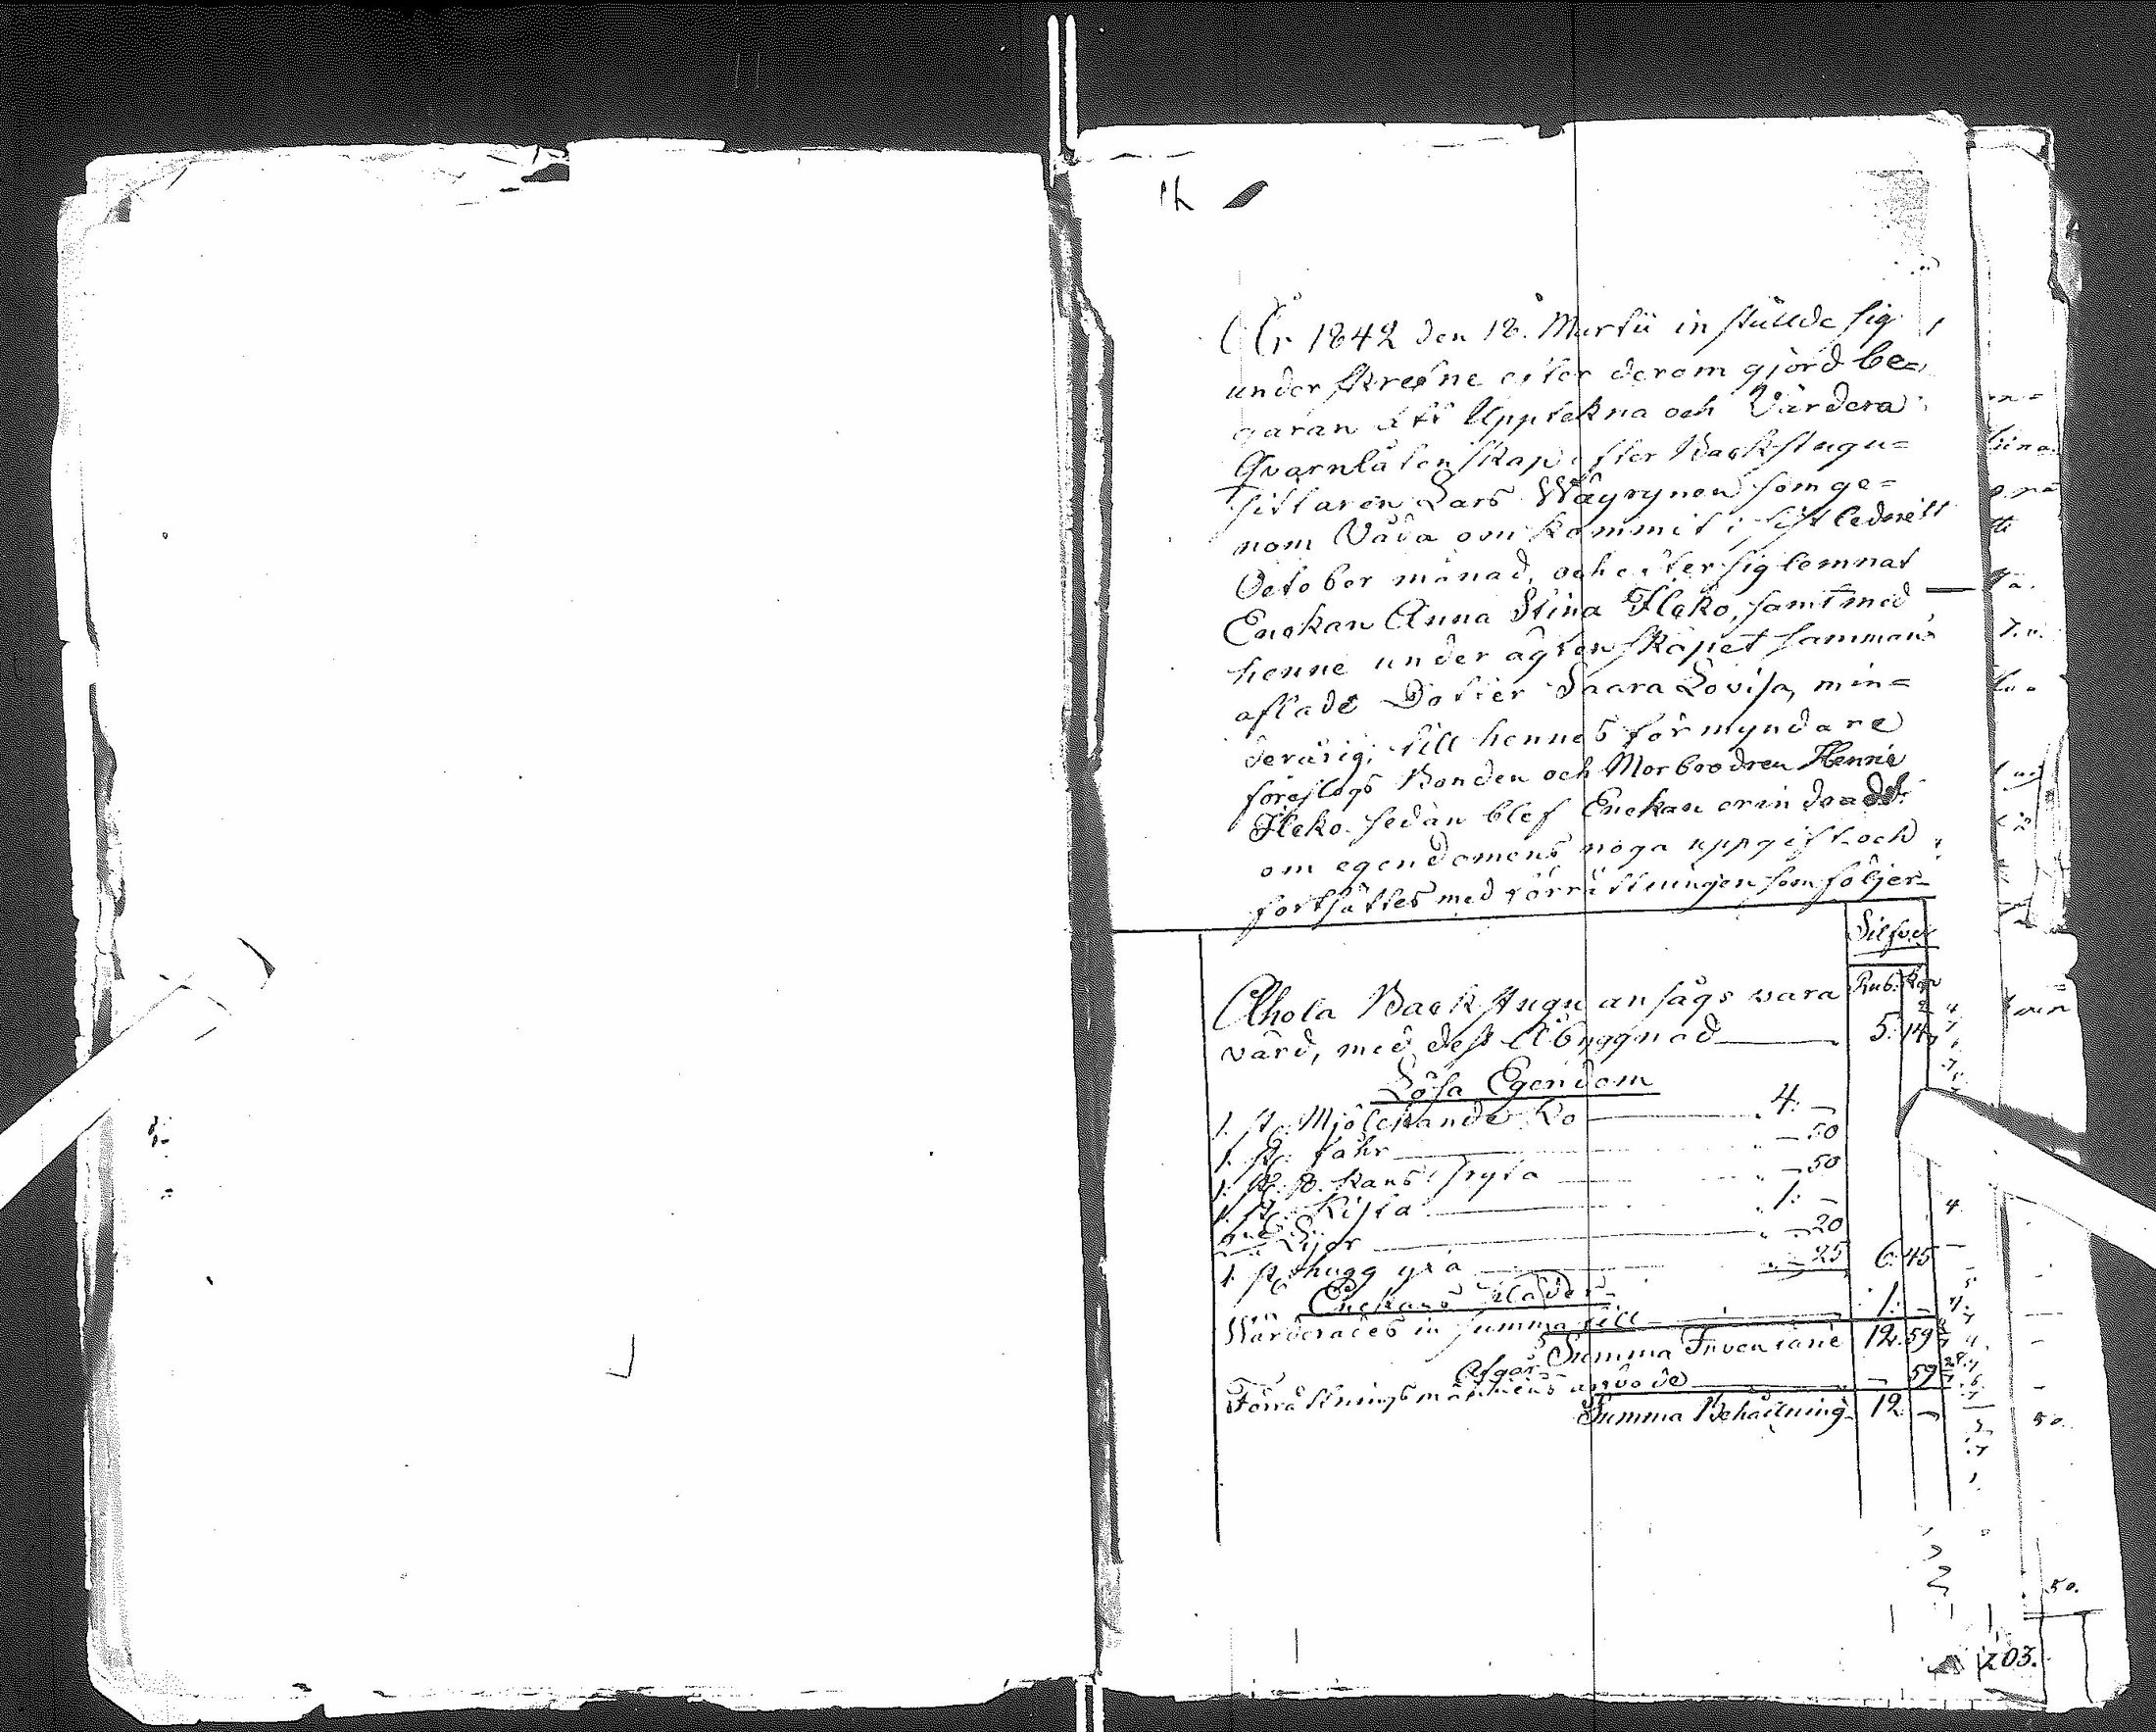 År 1842 den 18. Martii instäldde sig
underskrefne efter derom gjord be=
gäran att Upptekna och Värdera
Qvarnlåtenskap efter Backstugu=
sittaren Lars Wäyrynen som ge=
nom Våda omkommit i sistledne
October månad, och efter sig lemnat
Enckan Anna Stina Heko, samt med
henne under ägtenskapet samman
aflade Dotter Saara Lovisa, min=
derårig, till hennes förmyndare
föreslogs Bonden och Morbrodren Henric
Heko. sedan blef Enckan erindrad
om egendomens noga uppgift och
fortsättes med förrättningen som följer
Silfver
Rub. Kop
Ahola Backstugu ansågs vara
värd, med dess Åbyggnad 5. 14
Lösa Egendom
1. st. Mjölckande Ko 4. —
1. st. fåhr — 50
1. st. 8. kans gryta — 50
1. st. Kista 1. —
Lijor — 20
1. st. hugg yxa — 25 6. 45
Enckans Kläder
Wärderades in summa till 1. —
Summa Inventarie 12. 59
Afgår
Förrättningsmännens arvode — 59
Summa Behållning 12 —
50.
50.
203.